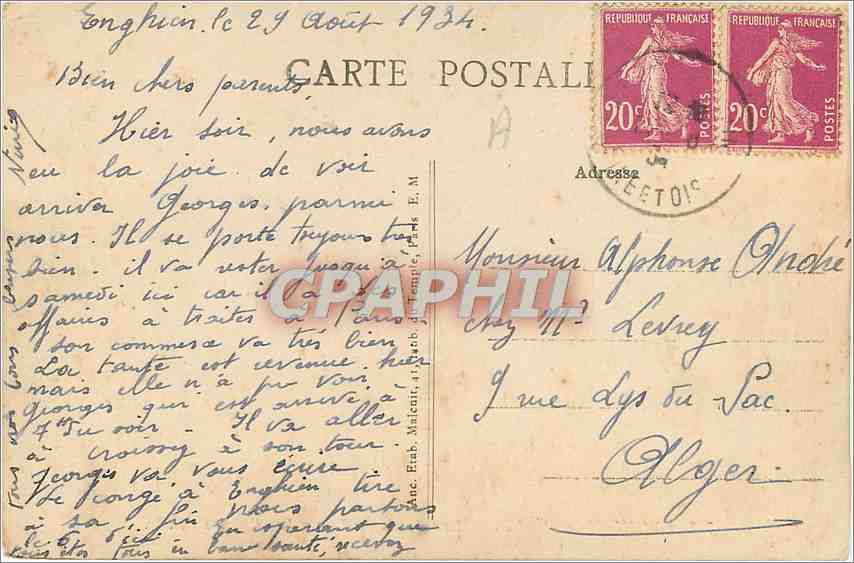 Enghien, le 29 Août 1934.
CARTE POSTALE
Bien chers parents,
Hier soir, nous avons
eu la joie de voir
arriver Georges parmi
nous. Il se porte toujours très
bien. il va rester jusqu'à
samedi ici car il a des
affaires à traiter à Paris,
son commerce va très bien
La tante est revenue hier
mais elle n'a pu voir
Georges qui est arrivé à
7 hs du soir. Il va aller
à Croissy à son tour.
Georges va vous écrire
Le congé à Enghien tire
à sa fin nous partons
le 6 d'ici en espérant que
vous êtes tous en bonne santé, recevez
tous nos bons baisers
A
Anc. Etab. Malcuit, 41, Faub. du Temple, Paris E. M
REPUBLIQUE FRANÇAISE
20c POSTES
REPUBLIQUE FRANÇAISE
20c POSTES
Adresse
Monsieur Alphonse André
chez Mr Levrey
9 rue Lys du Pac.
Alger
CPAPHIL